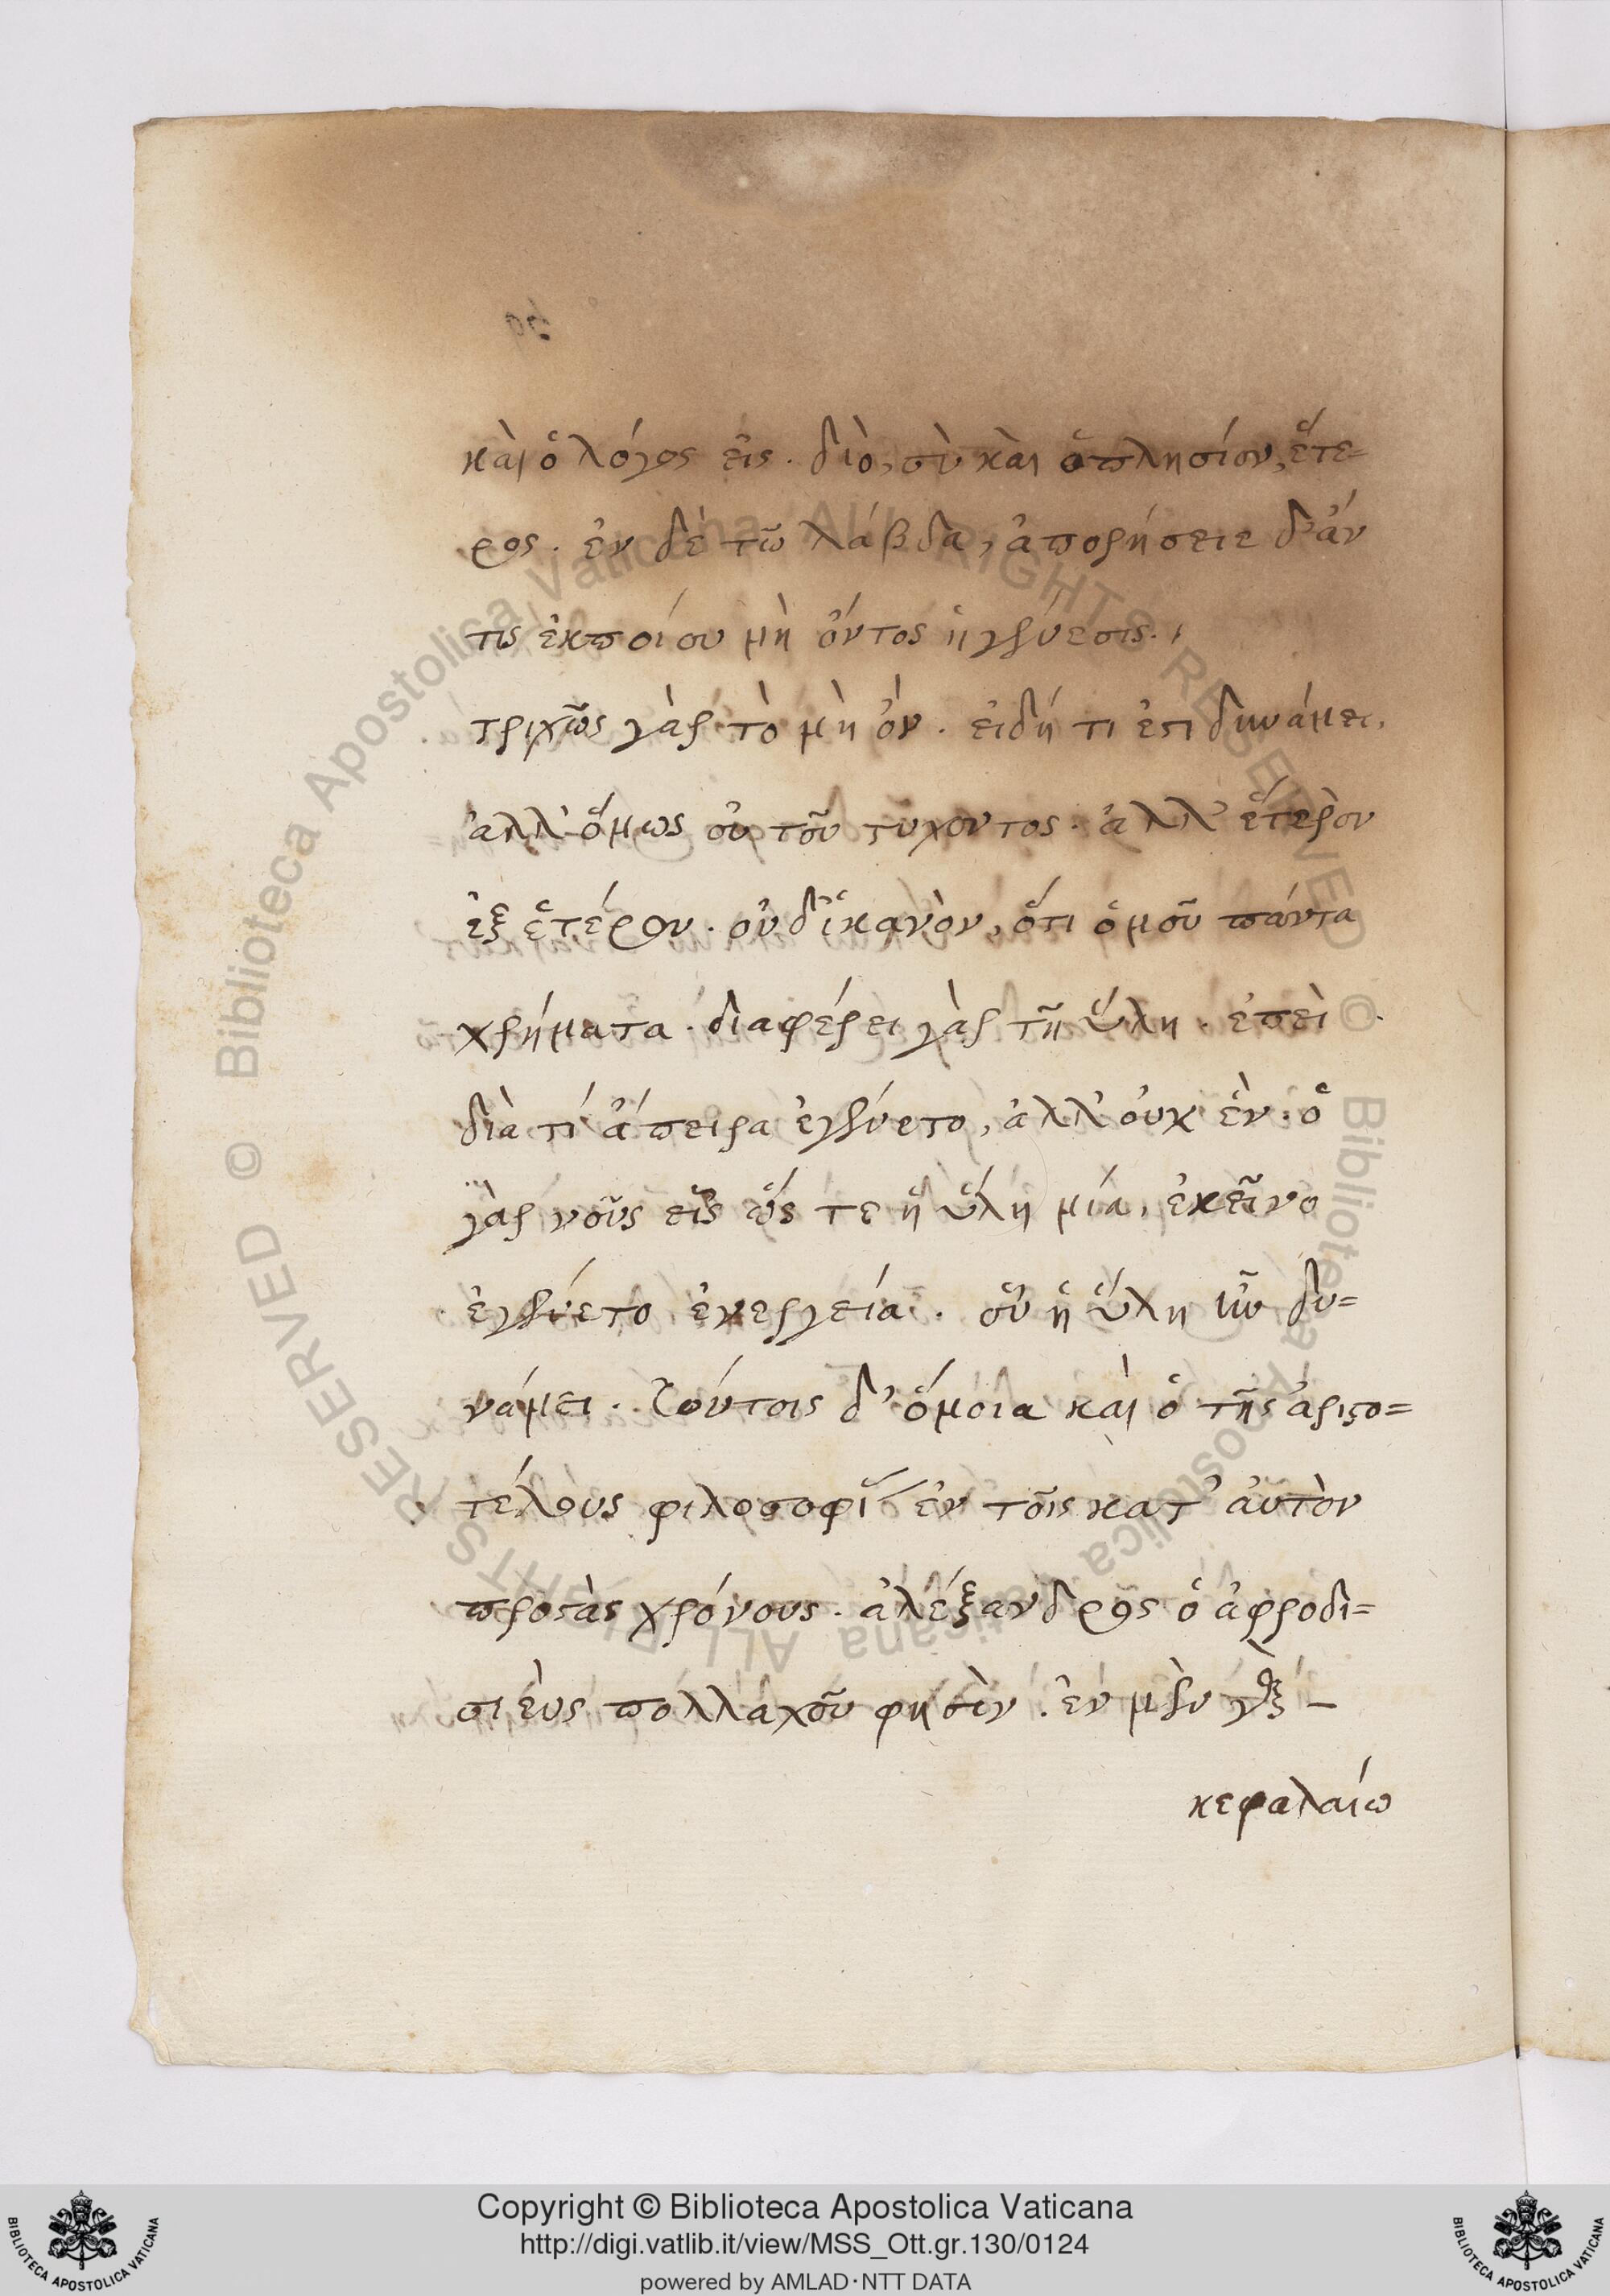 καὶ ὁ λόγος εἷς. διὸ, σὺ καὶ ὁ πλησίον, ἕτε=
ρος. ἐν δὲ τῶ λάβδα, ἀπορήσειε δ' ἄν
τις ἐκ ποίου μὴ ὄντος ἡ γένεσις.
τριχῶς γὰρ τὸ μὴ ὄν. εἰ δή τι ἐστι δυνάμει,
ἀλλ' ὅμως οὐ τοῦ τυχόντος. ἀλλ' ἕτερον
ἐξ ἑτέρου. οὐδ' ἱκανὸν, ὅτι ὁμοῦ πάντα
χρήματα. διαφέρει γὰρ τῆ ὕλη. ἐπεὶ
διὰ τί ἄπειρα ἐγένετο, ἀλλ' οὐχ ἕν. ὁ
γὰρ νοῦς εἷς ὥς τε ἡ ὕλη μία, ἐκεῖνο
ἐγένετο ἐνεργεία. οὗ ἡ ὕλη ἦν δυ=
νάμει. Τούτοις δ' ὅμοια καὶ ὁ τῆς ἀριστο=
τέλους φιλοσοφί ἐν τοῖς κατ' αὐτὸν
προστὰς χρόνους. ἀλέξανδρος ὁ ἀφροδι=
σιεὺς πολλαχοῦ φησὶν. ἐν μὲν
κεφαλαίω
Copyright © Biblioteca Apostolica Vaticana
http://digi.vatlib.it/view/MSS_Ott.gr.130/0124
powered by AMLAD·NTT DATA